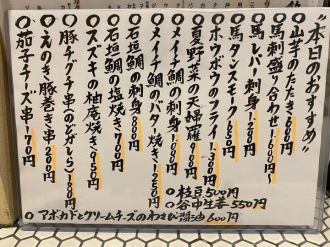 "本日のおすすめ"
○山芋のたたき 600円
○馬刺盛り合わせ 1.600円
○馬レバー刺身 1.200円
○馬タンスモーク 650円
○ホウボウのフライ 1.300円
○夏野菜の天婦羅 900円
○メイチ鯛の刺身 1.000円
○メイチ鯛のバター焼き 1.250円
○石垣鯛の刺身 800円
○石垣鯛の塩焼き 700円
○スズキの柚庵焼き 950円
○豚チグラ串(のどがしら) 180円
○えのき豚巻き串 200円
○茄子チーズ串 190円
○枝豆 500円
○谷中生姜 550円
○アボカドとクリームチーズのわさび醤油 600円